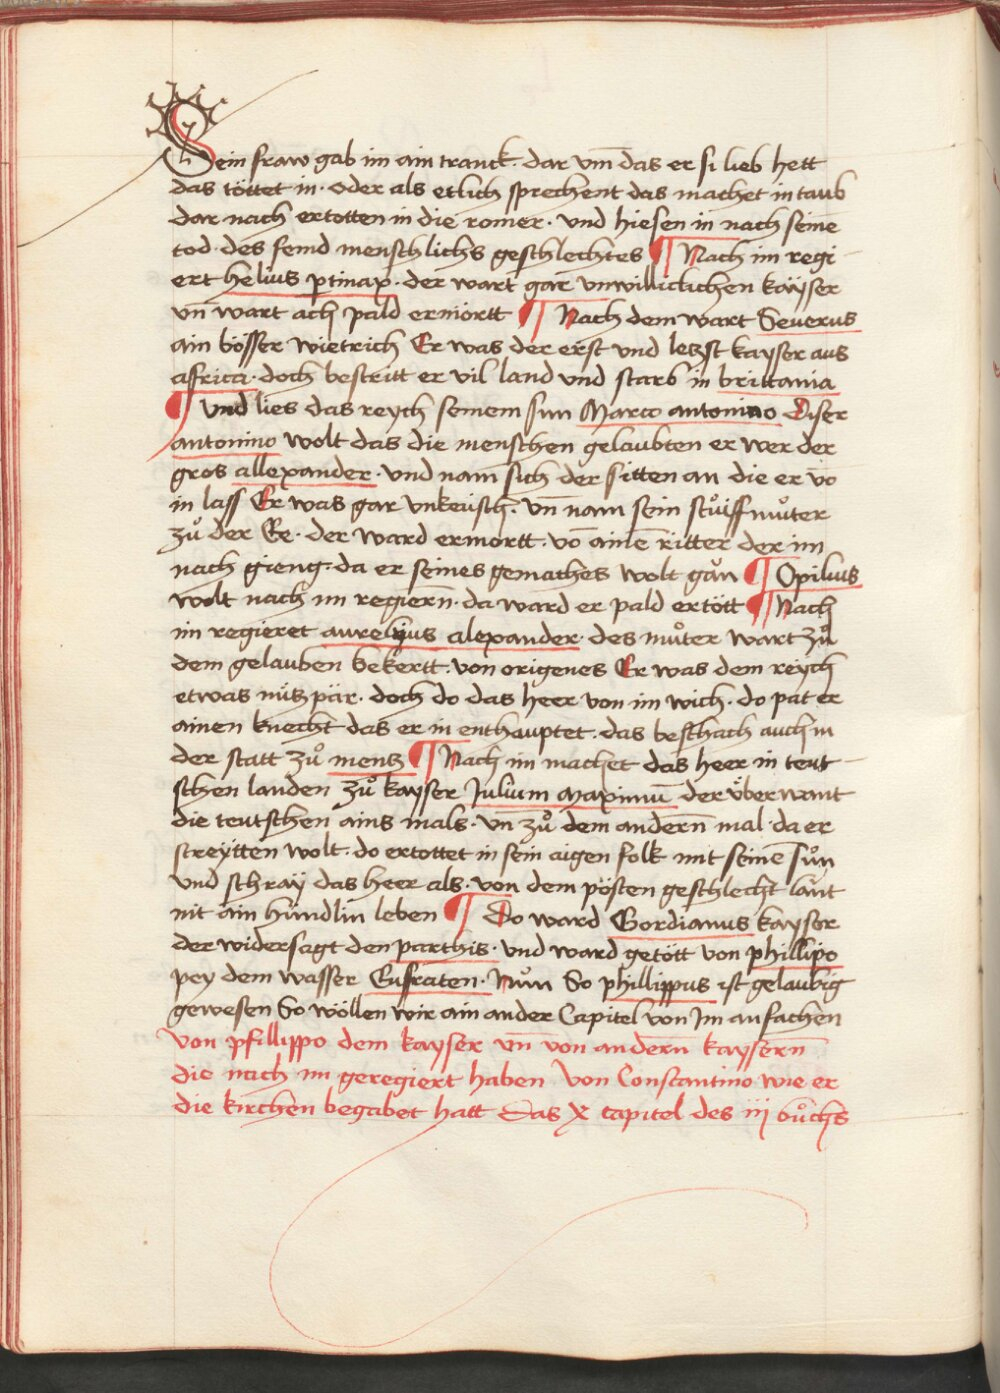 Sein fraw gab im ain tranck · dar vm̄ das er si lieb hett
das töttet in · oder als etlich sprechent das machet in taub
dar nach ertotten in die romer · vnd hiesen in nach seine
tod · des feind menschlichs geschlechtes ¶ Nach im regi-
ert helius ptinax · der wart gar vnwilliclichen kaÿser
vn̄ wart ach pald ermörtt ¶ Nach dem wart Seuerus
ain bösser wietrich Er was der erst vnd letzst kayser aus
africa · doch bestritt er vil land vnd starb in brittania
¶ Vnd lies das reych seinem sun Marco antonino Diser
antonino wolt das die menschen gelaubten er wer der
gros allexander · vnd nam sich der sitten an die er vō
in lass Er was gar vnkeüsch · vn̄ nam sein stůiffmůter
zů der Ee · der ward ermortt · vō ainē ritter der im
nach gieng · da er seines gemaches wolt gån ¶ Opilius
wolt nach im regiern̄ · da ward er pald ertött ¶ Nach
im regieret aurelyus alexander · des můter wart zů
dem gelauben bekertt · von origenes Er was dem reych
etwas nützpär · doch do das heer von im wich · do pat er
ainen knecht das er in enthauptet · das beschach auch in
der statt zů mentz ¶ Nach im machet das heer in teut-
schen landen zů kayser Julium Maximū der überwant
die teutschen ains mals · vn̄ zů dem andern̄ mal · da er
streÿtten wolt · do ertottet in sein aigen folk mit seinē sůn
vnd schraÿ das heer als · von dem pösten geschlecht laut
nit ain hündlin leben ¶ Do ward Gordianus kayser
der widersagt den parthis · vnd ward getött von phillipo
pey dem wasser Eufraten · Nůn So phillippus ist gelaubig
gewesen So wöllen wir ain ander Capitel von Im anfachen
von pfillippo dem kayser vn̄ von andern̄ kaysern̄
die nach im geregiert haben Von Constantino wie er
die kirchen begabet hatt Das X capitel des iij bůchs